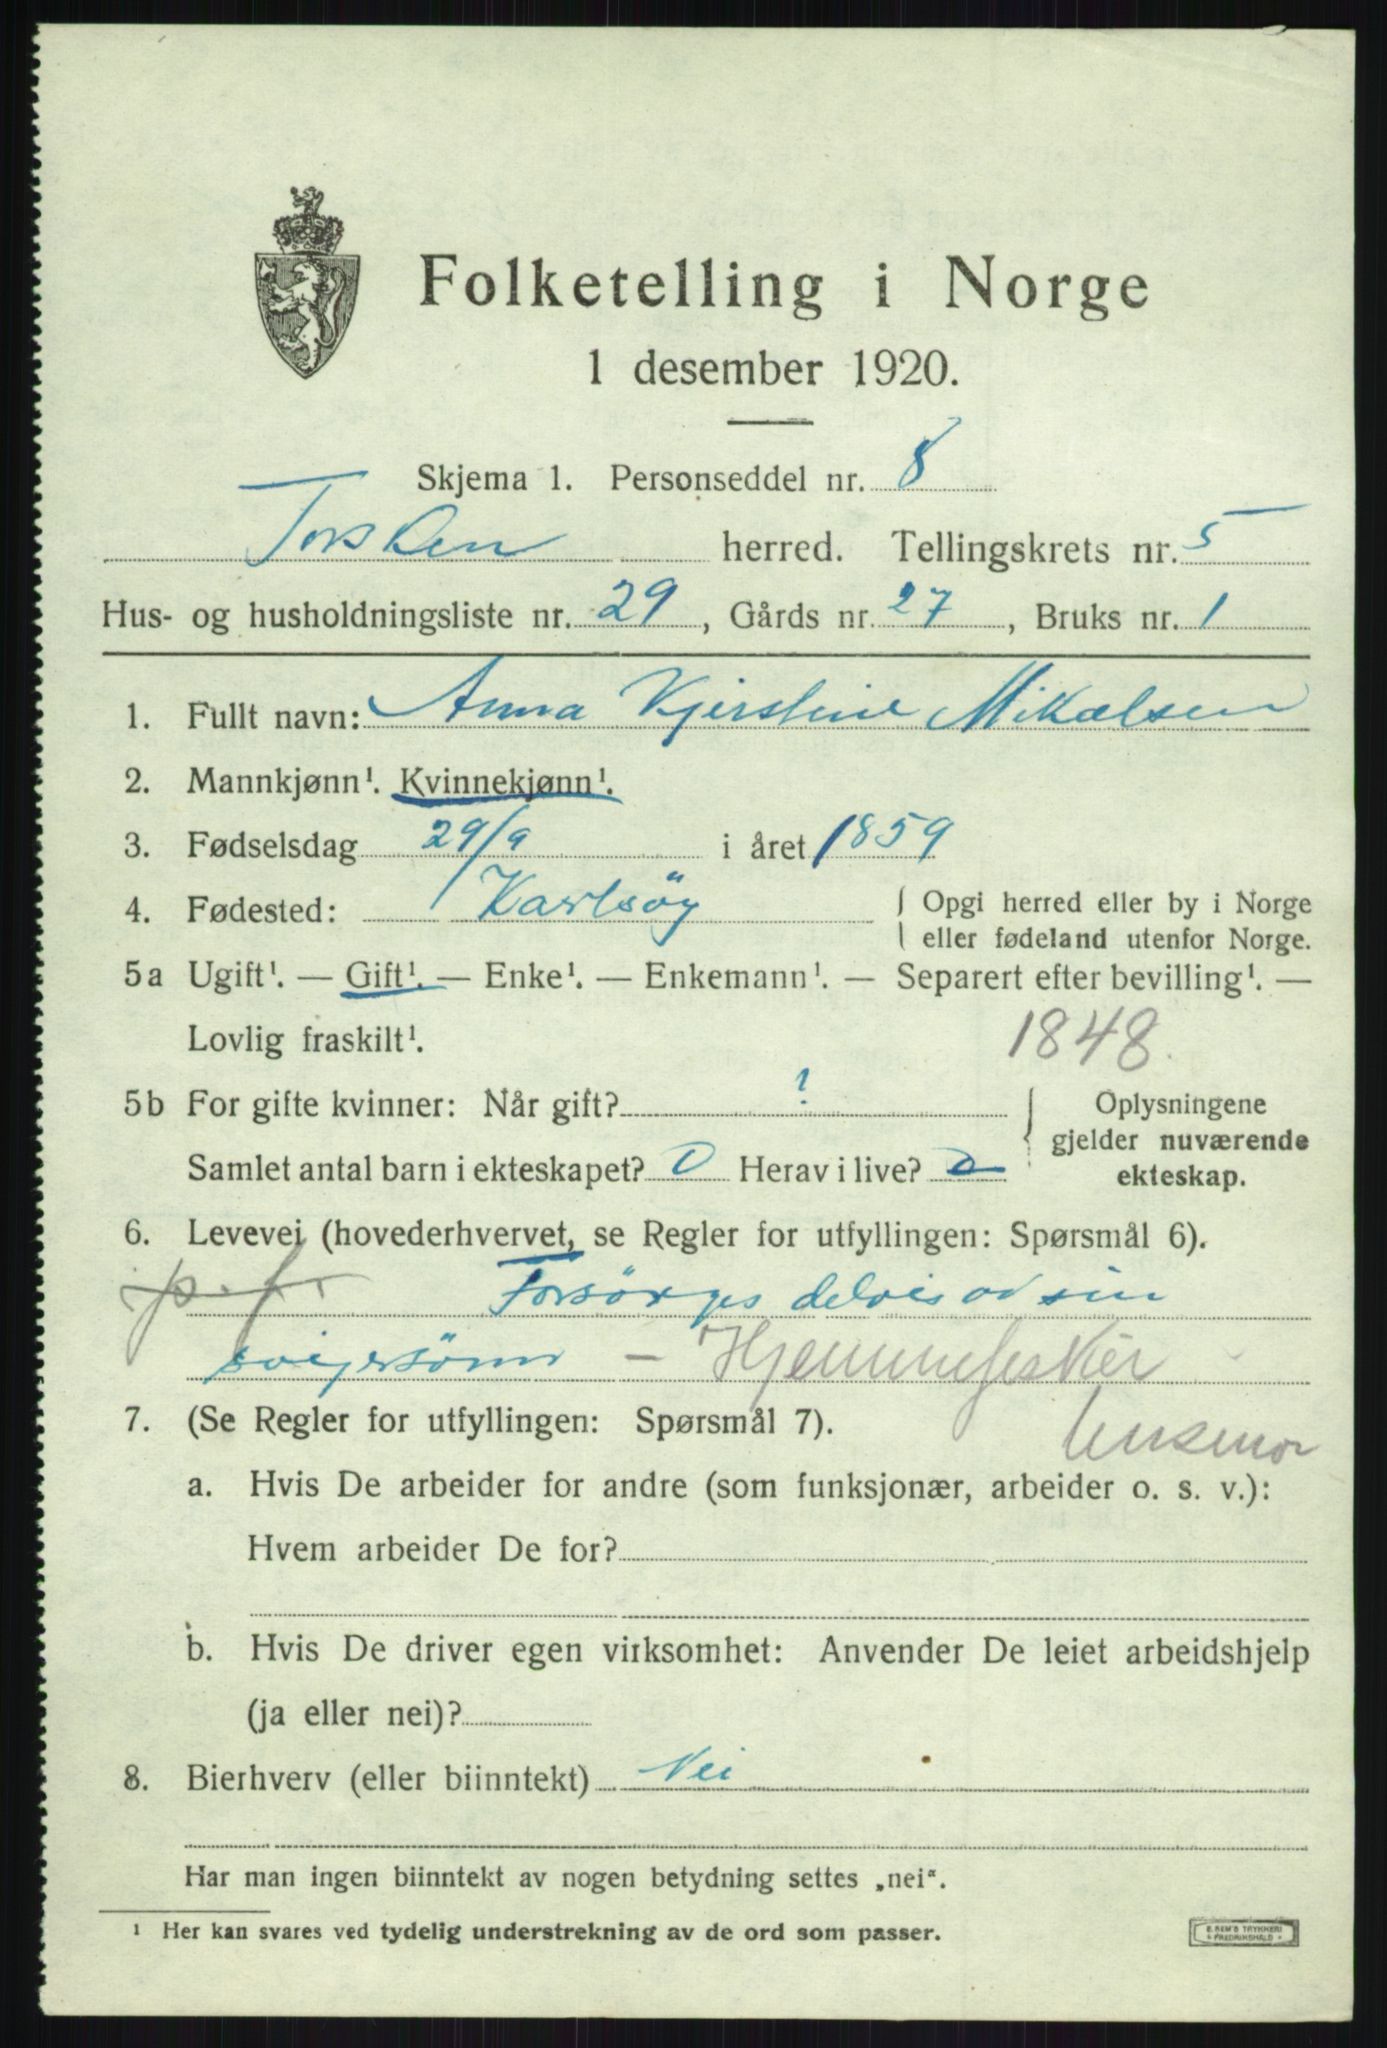 Folketelling i Norge
1 desember 1920.
Skjema 1. Personseddel nr. 8
Torsken herred. Tellingskrets nr. 5
Hus- og husholdningsliste nr. 29, Gårds nr. 27, Bruks nr. 1
1. Fullt navn: Anna Kjerstine Mikalsen
2. Mannkjønn¹. Kvinnekjønn¹.
3. Fødselsdag 29/9 i året 1859
4. Fødested: Karlsöy { Opgi herred eller by i Norge
eller fødeland utenfor Norge.
5a Ugift¹. — Gift¹. — Enke¹. — Enkemann¹. — Separert efter bevilling¹. —
Lovlig fraskilt¹. 1848.
5b For gifte kvinner: Når gift? ?
Samlet antal barn i ekteskapet? 0 Herav i live? 0
} Oplysningene
gjelder nuværende
ekteskap.
6. Levevei (hovederhvervet, se Regler for utfyllingen: Spørsmål 6).
p.f. Forsörges delvis av sin
svigersönn — Hjemmefisker
7. (Se Regler for utfyllingen: Spørsmål 7).
a. Hvis De arbeider for andre (som funksjonær, arbeider o. s. v.):
Hvem arbeider De for?
b. Hvis De driver egen virksomhet: Anvender De leiet arbeidshjelp
(ja eller nei)?
8. Bierhverv (eller biinntekt) Nei
Har man ingen biinntekt av nogen betydning settes „nei“.
¹ Her kan svares ved tydelig understrekning av de ord som passer.
E. SEM'S TRYKKERI
FREDRIKSHALD